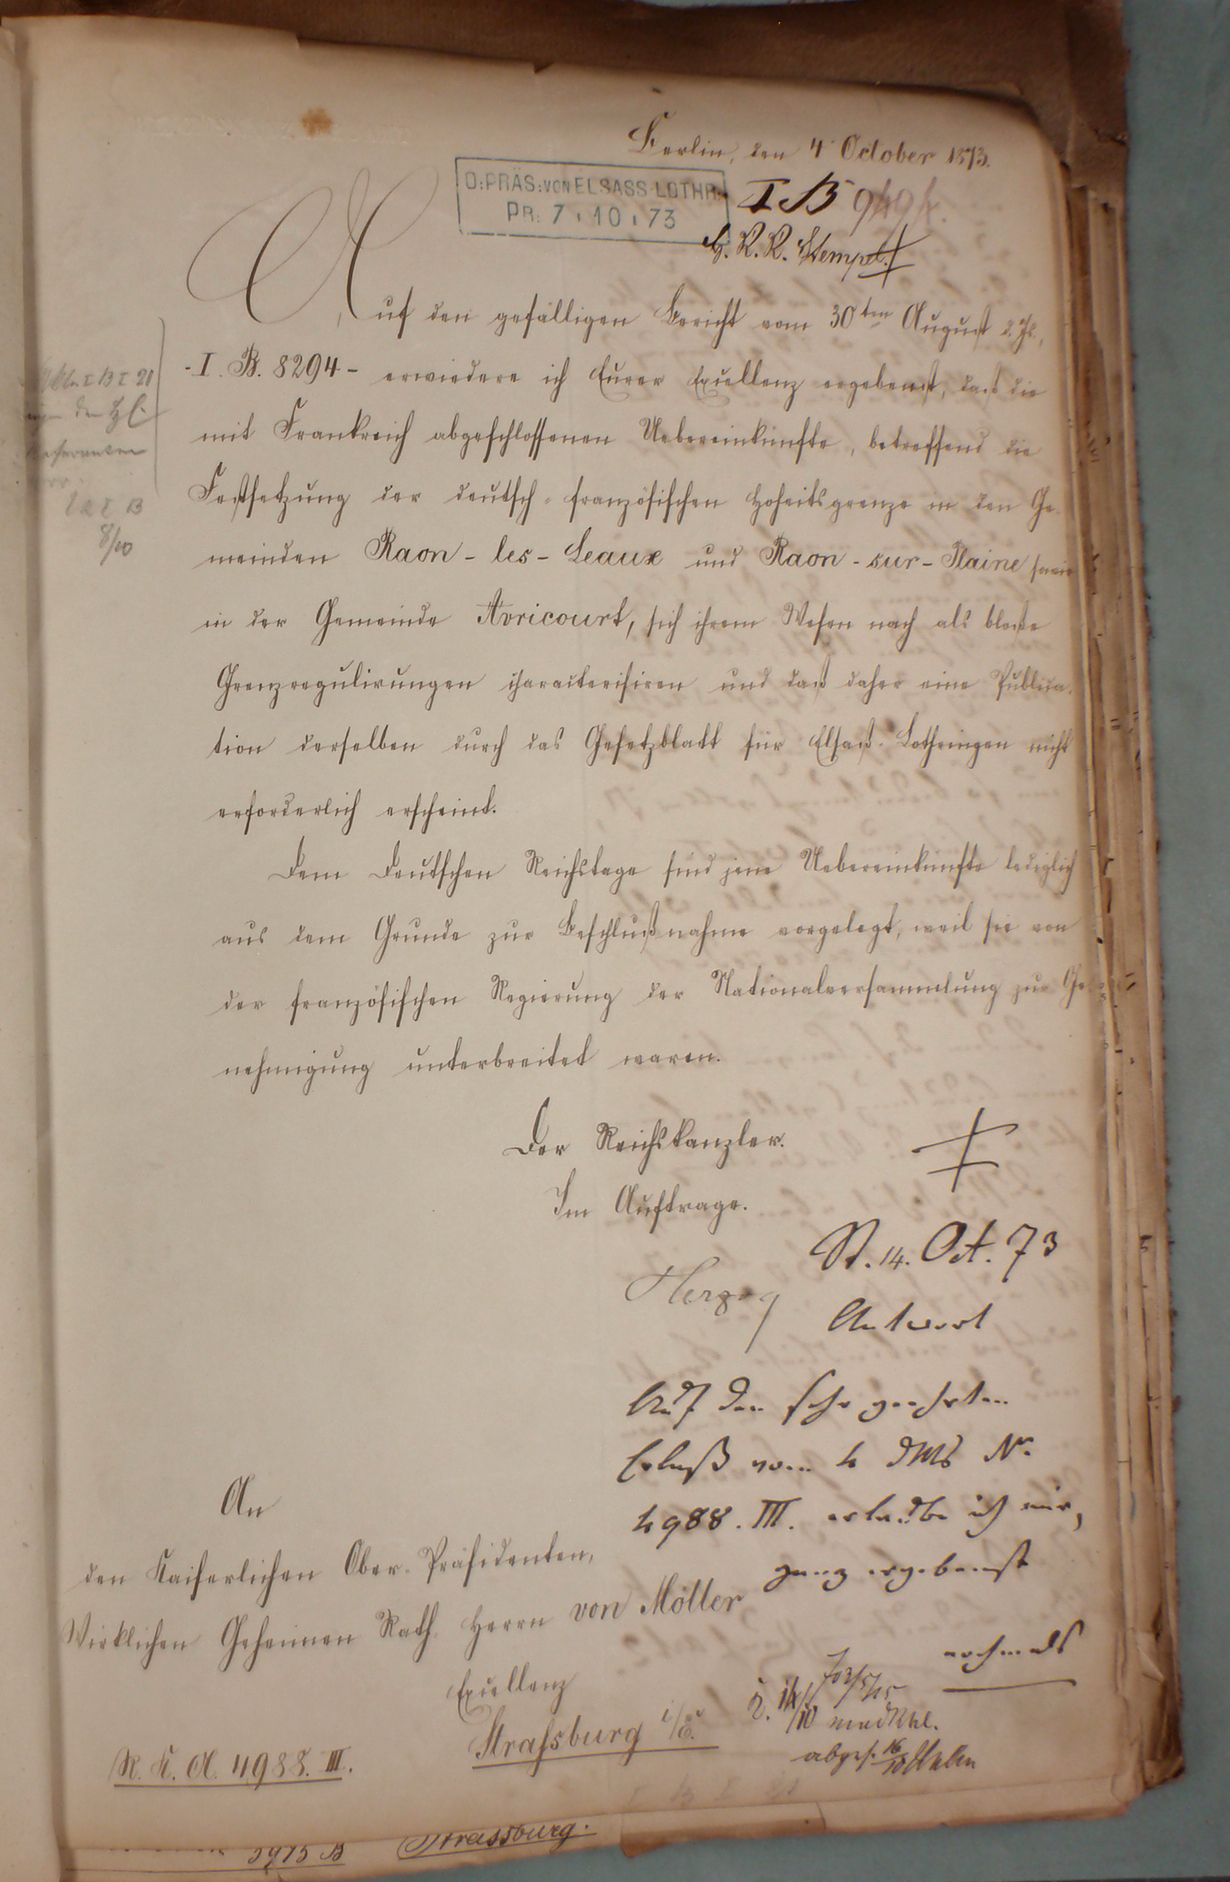 Berlin, den 4 October 1873.
O: PRÄS: VON ELSASS-LOTHR:
PR: 7.10.73
I B 9494.
G. R. R. Stempel.
Auf den gefälligen Bericht vom 30ten August d. Js.,
- I. B. 8294 - erwiedere ich Eurer Excellenz ergebenst, daß die
mit Frankreich abgeschlossenen Uebereinkünfte, betreffend die
Festsetzung der deutsch-französischen Hoheitsgrenze in den Ge-
meinden Raon-les-Leaux und Raon-sur-Plaine sowie
in der Gemeinde Avricourt, sich ihrem Wesen nach als bloße
Grenzregulirungen characterisiren und daß daher eine Publica-
tion derselben durch das Gesetzblatt für Elsaß-Lothringen nicht
erforderlich erscheint.
Dem Deutschen Reichstage sind jene Uebereinkünfte lediglich
aus dem Grunde zur Beschlußnahme vorgelegt, weil sie von
der französischen Regierung der Nationalversammlung zur Ge-
nehmigung unterbreitet waren.
Der Reichskanzler.
Im Auftrage.
Herzog
I B
8/10
St. 14. Oct. 73
Antwort
Auf den sehr geehrten
Erlaß vom 4 dMs Nr.
4988. III. erlaube ich mir,
ganz ergebenst
nochmals
An
den Kaiserlichen Ober-Präsidenten,
Wirklichen Geheimen Rath, Herrn von Möller
Excellenz
Strassburg i/E.
R. K. A. 4988. III.
14/10
abges. 16/10
Strassburg.